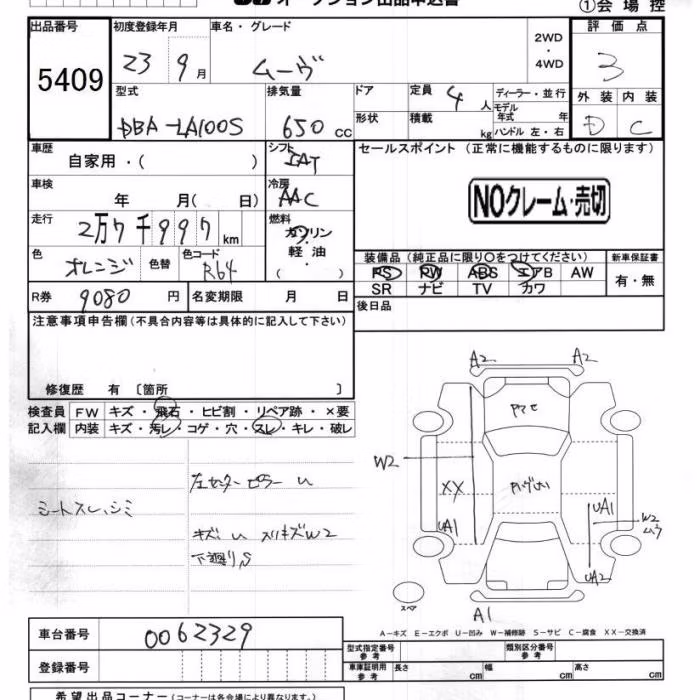 ①会 場 控
出品番号 初度登録年月 車名・グレード 2WD・4WD 評 価 点
5409 23 9月 ムーヴ 3
型式 排気量 ドア 定員 4人 ディーラー・並行 外 装 内 装
モデル年式 年
DBA-LA100S 650 cc 形状 積載 kg ハンドル 左・右 D C
車歴 シフト セールスポイント (正常に機能するものに限ります)
自家用・( )
車検 冷房 NOクレーム・売切
年 月( 日) AAC
走行 燃料
2万7千997km ガソリン・軽油・( )
色 色替 色コード 装備品 (純正品に限り○をつけてください) 新車保証書
オレンジ R64 PS PW ABS エアB AW 有・無
SR ナビ TV カワ
R券 9080円 名変期限 月 日 後日品
注意事項申告欄 (不具合内容等は具体的に記入して下さい)
修復歴 有 〔箇所 〕
検査員 FW キズ・飛石・ヒビ割・リペア跡・×要
記入欄 内装 キズ・汚レ・コゲ・穴・スレ・キレ・破レ
A2 A2
W2
XX UA1
UA1 W2
シートスレ、シミ
キズ W2
下廻りS
UA2
スペア
A1
A-キズ E-エクボ U-凹み W-補修跡 S-サビ C-腐食 XX-交換済
車台番号 0062329
型式指定番号 参考 類別区分番号 参考
登録番号 車庫証明用 参考 長さ cm 幅 cm 高さ cm
希望出品コーナー (コーナーは各会場により異なります。)